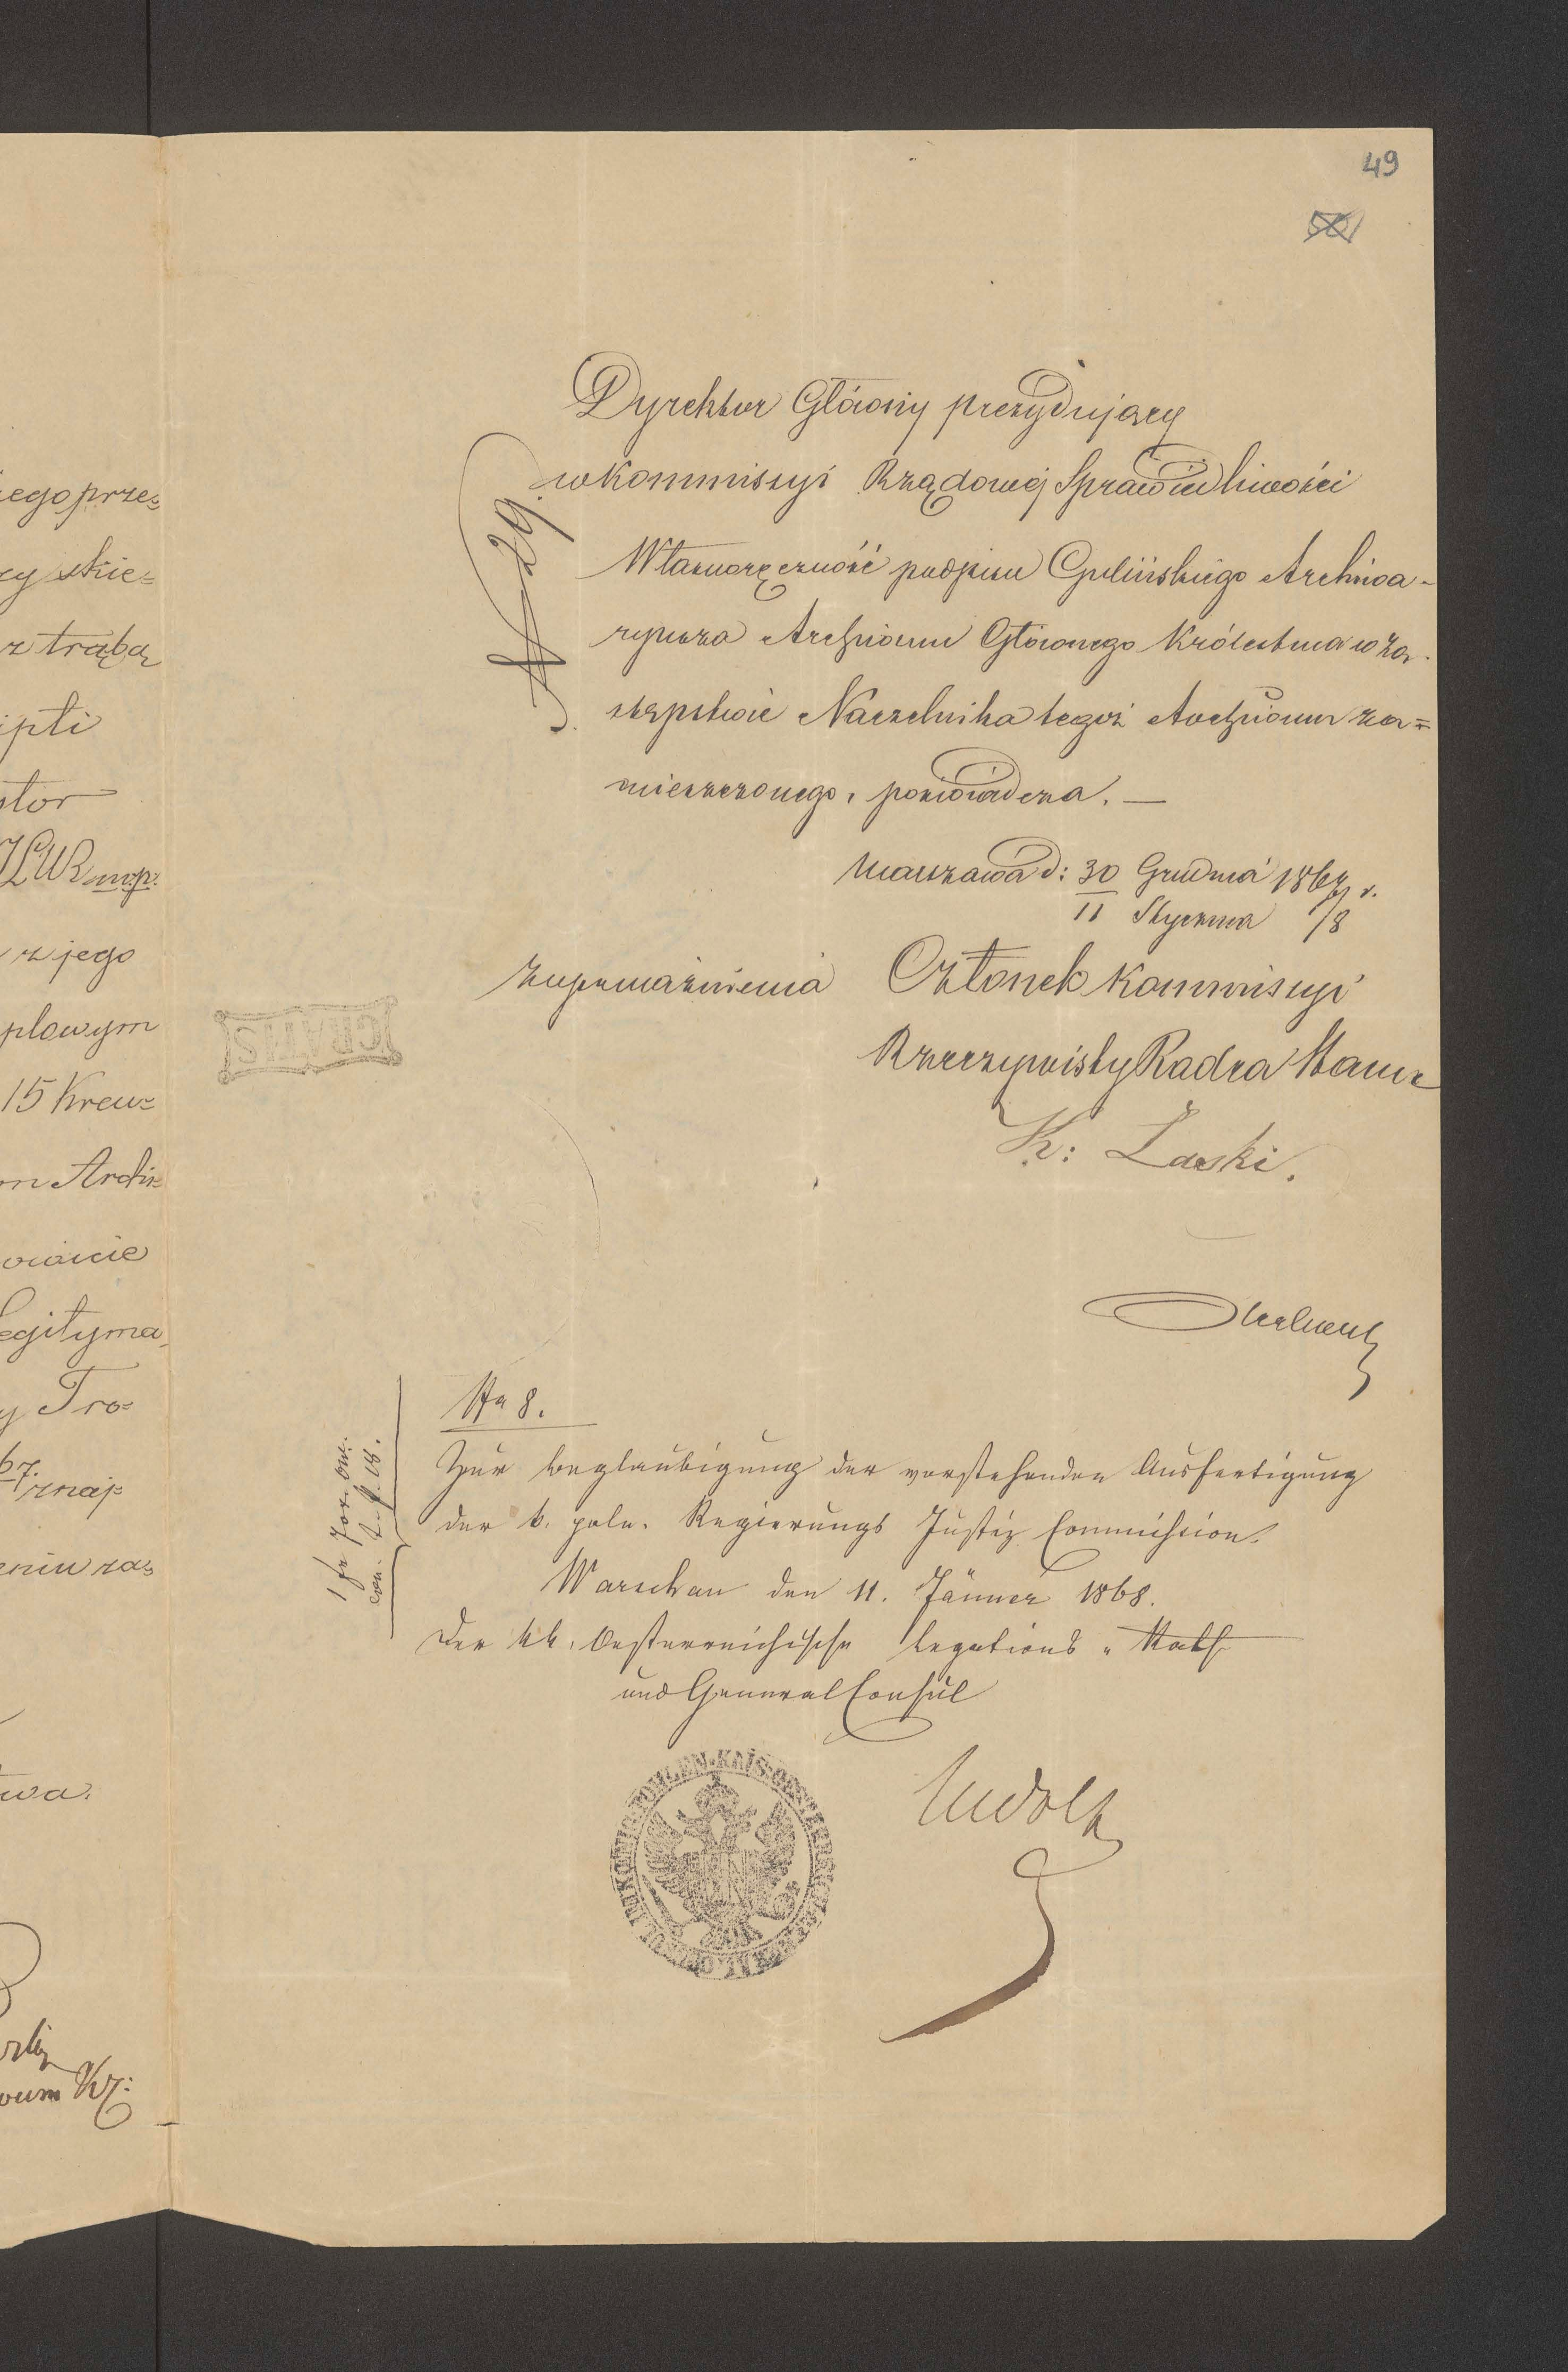 49
Dyrektor Główny prezydujący
w Kommissyi Rządowej Sprawiedliwości
№ 29.
Własnoręczność podpisu Gulińskiego Archiwa-
ryusza Archiwum Głównego Królestwa w za-
stępstwie Naczelnika tegoż Archiwum za=
mieszczonego, poświadcza. —
Warszawa d: 30 Grudnia 1867 r.
11 Stycznia /8
Z upoważnienia Członek Kommissyi
Rzeczywisty Radca Stanu
K: Laski.
GRATIS
No 8.
Zur Beglaubigung der vorstehenden Ausfertigung
der k. poln. Regierungs Justiz Commission.
Warschau den 11. Jänner 1868.
Der kk. Oesterreichische Legations-Rath
und General Consul
ego prze=
cy skie=
z trąbą
ipti
stor
mp.
z jego
plowym
15 Kreu=
m Archi=
egityma
y Tro=
67.
znaj=
eniu za=
twa.